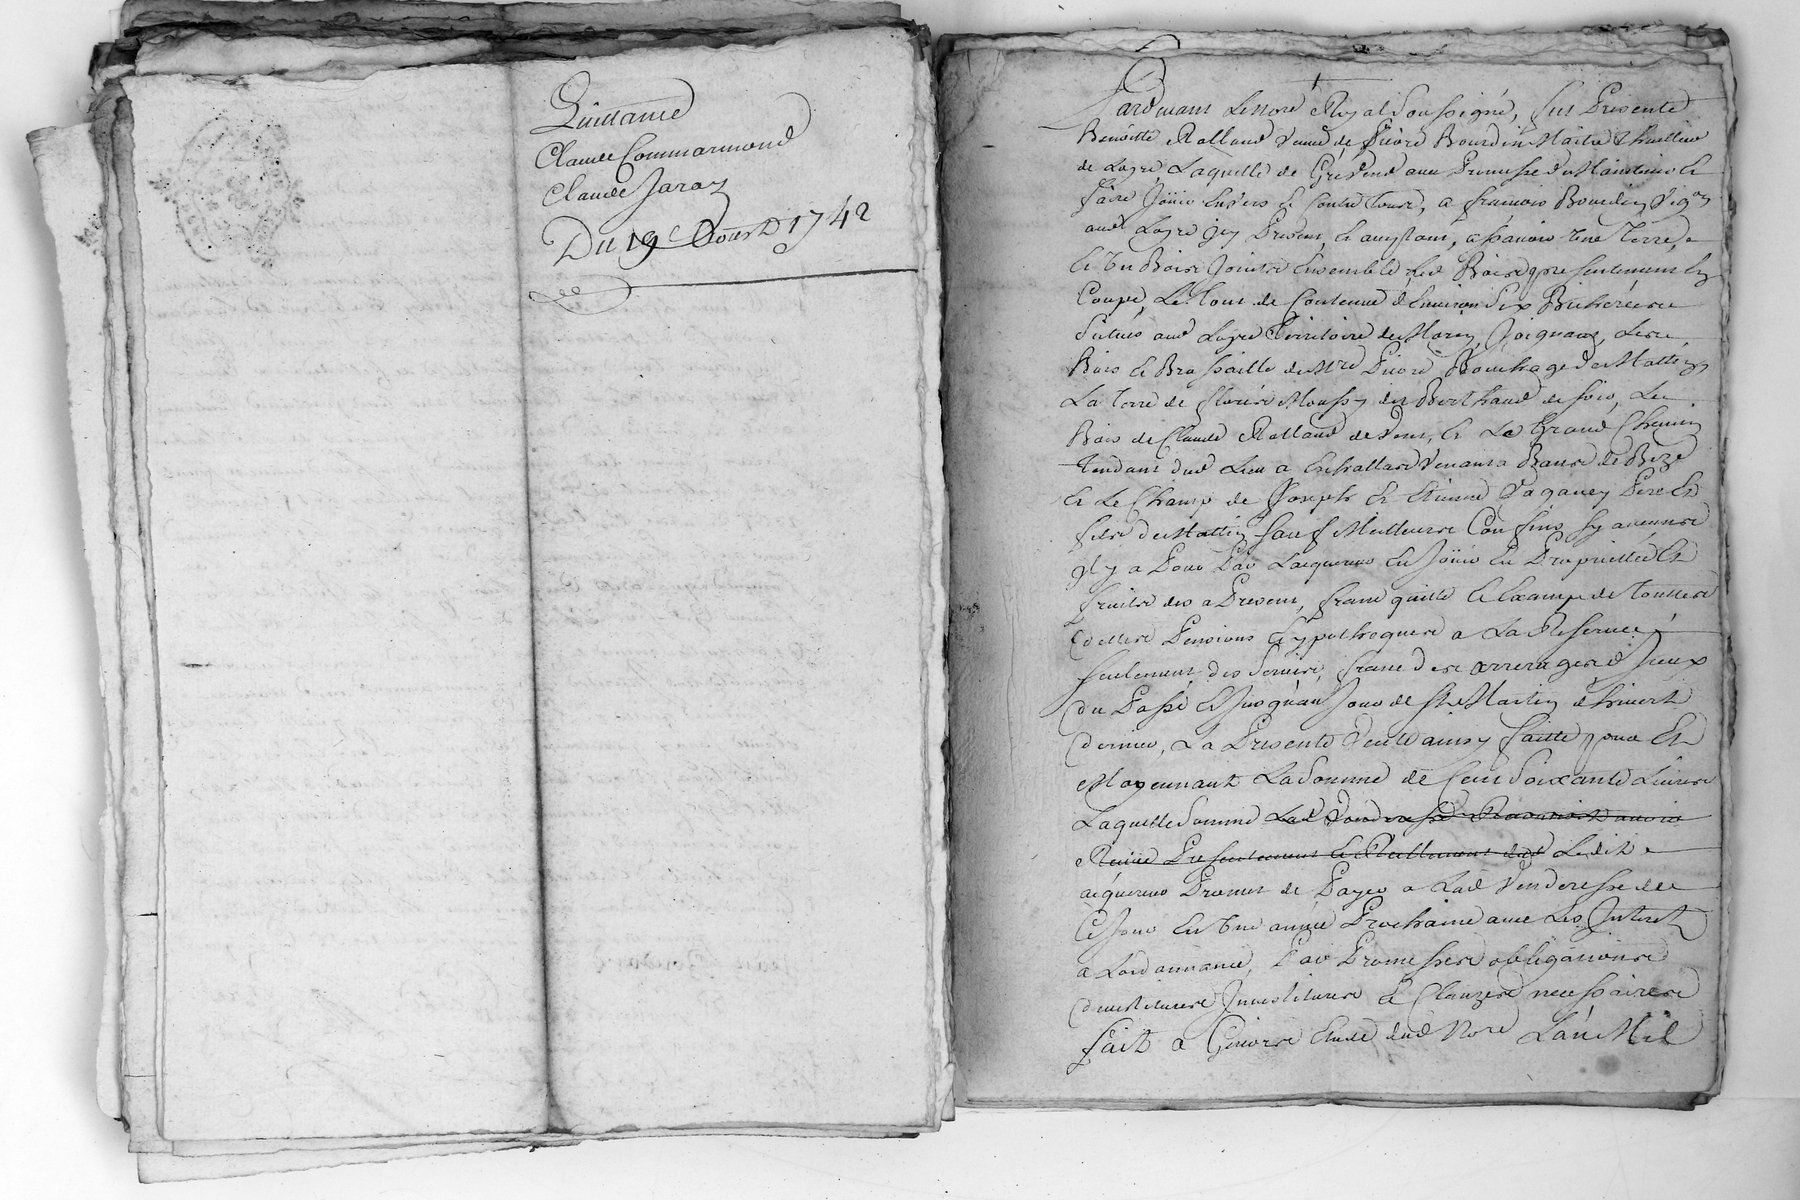 Quittance
Claude Commarmond
Claude Jaraz
Du 19e Aoust 1742
Pardevant Le Nore Royal Soussigné, fut Presente
Benoitte Rolland veuve de Pierre Bourdin Maitre
de Loyre Laquelle de Gré vend avec Promesse de Maintenir et
faire Jouir envers et contre tous, a francois Bourdin Vigon
aud Loyre icy Present, et acceptant, ascavoir une Terre,
et un Bois Joints Ensemble Led Bois presentement en
Coupe, Le tout de Contenue d'Environ Six Bicherées
Situés aud Loyre Territoire de Morin, Joignant, Les
Bois et Brossaille de Mre Pierre Bouchage de
La terre de fleurie Moussy de Berthaud de soir, Le
Bois de Claude Rolland de vent, et Le Grand Chemin
tendant dud Lieu a Eschallas venant a de Bize
et Le Champ de Joseph et Etienne Pere et
fils de Mattin Sauf Meilleurs Confins sy aucuns
il y a Pour Par Lacquereur En Jouir En Proprietté et
fruits des a Present, franc quitte et Exempt de touttes
dettes Pensions et ypotheques a La Reserve
seulement des servis, francs des arrerages d'Iceux
du Passé et Jusqu'au Jour de St Martin d'hivert
dernier, La Presente vente ainsy faitte pour Et
Moyennant La Somme de Cent Soixante Livres
Laquelle Somme Lad Venderesse a Reconnu avoir
Reçüe Presentement et Reellement dud Ledit
acquereur Promet de Payer a Lad Venderesse de
Ce Jour En une année Prochaine avec Les Interets
a Lordonnance, Par Promesses obligations
devestitures Investitures et Clauzes necessaires
fait a Givors Etude dud Nore L'an Mil